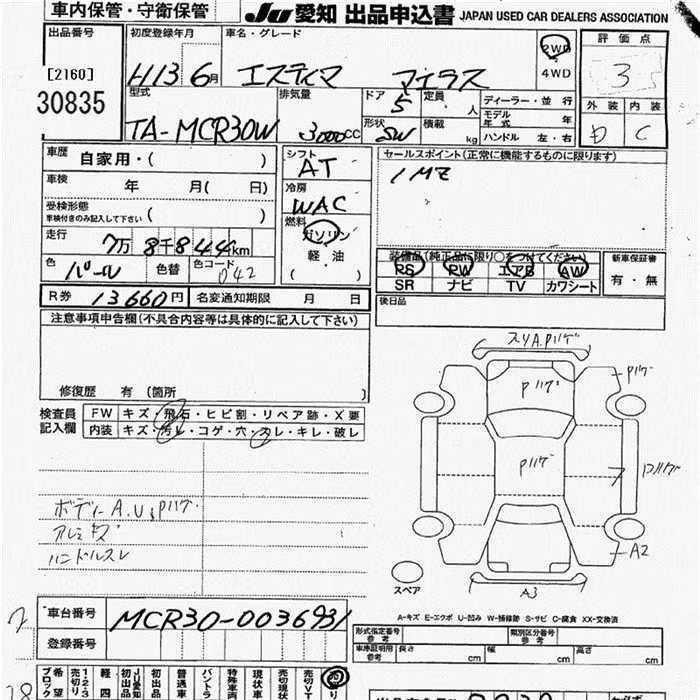 車内保管・守衛保管
Ju 愛知 出品申込書 JAPAN USED CAR DEALERS ASSOCIATION
出品番号
[2160]
30835
初度登録年月
H13 6月
車名・グレード
エスティマ アエラス
2WD
4WD
評価点
3
外装 内装
D C
型式
TA-MCR30W
排気量
3000cc
ドア
5
定員
人
形状
SW
積載
kg
ディーラー・並行
モデル年式 年
ハンドル 左・右
車歴 自家用・( )
車検 年 月( 日)
受検形態
車検付きのみ記入して下さい ( )
走行
7万8千844km
色 パール 色替 色コード 042
シフト
AT
冷房
WAC
燃料
ガソリン
軽・油
( )
セールスポイント(正常に機能するものに限ります)
1MZ
装備品(純正品に限り○をつけてください)
RS PW エアB AW
SR ナビ TV カワシート
新車保証書
有・無
R券 13660円 名変通知期限 月 日
後日品
注意事項申告欄(不具合内容等は具体的に記入して下さい)
修復歴 有 (箇所 )
検査員記入欄
FW キズ・飛石・ヒビ割・リペア跡・X要
内装 キズ・汚レ・コゲ・穴・スレ・キレ・破レ
ボディーA.U
アルミキズ
ハンドルスレ
A2
A3
スペア
A-キズ E-エクボ U-凹み W-補修跡 S-サビ C-腐食 XX-交換済
車台番号 MCR30-0036931
登録番号
型式指定番号 参考
類別区分番号 参考
車庫証明用 参考 長さ cm 幅 cm 高さ cm